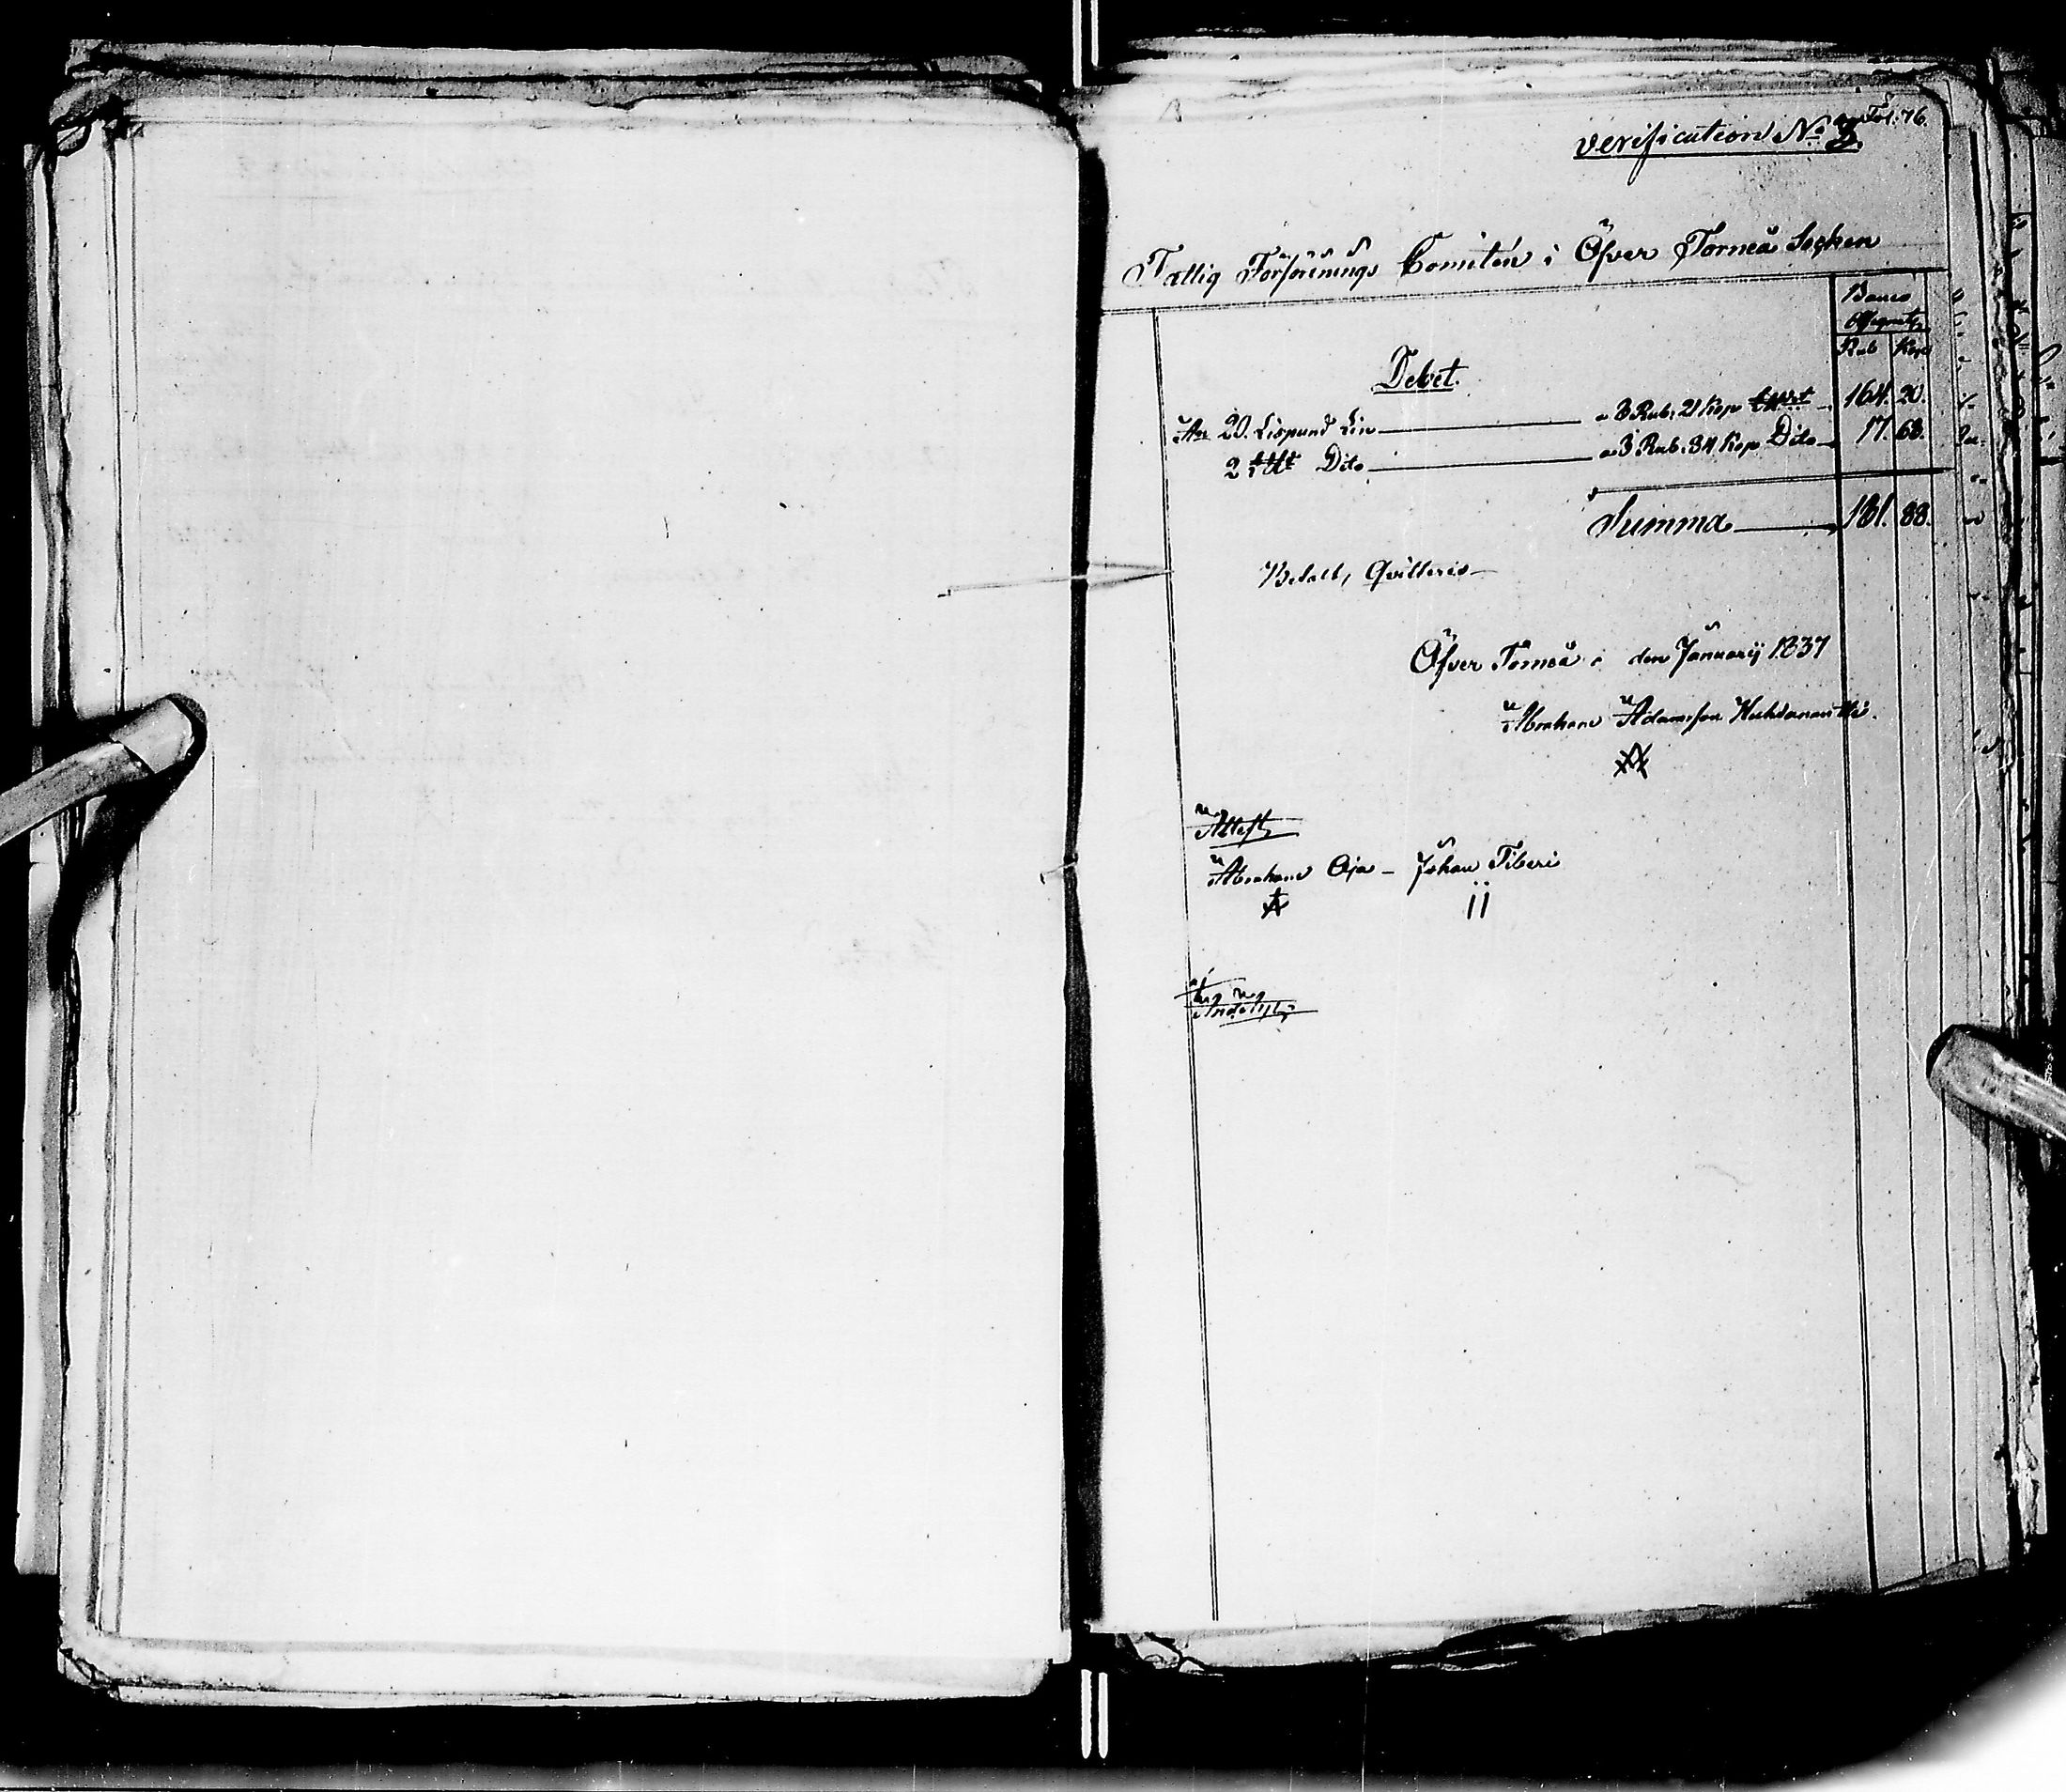 Fol. 76.
Verification No 2.
Fattig Försörjnings Comitén i Öfver Torneå Socken
Banco
Assignat:
Rub Kop
Debet.
An 20. Lispund Lin — a 8 Rub: 21 Kop — 164. 20.
2 Dito — a 8 Rub: 84 Kop Dito — 17. 68.
Summa — 181. 88.
Betalt, Qvitteris —
Öfver Torneå i den Januarij 1837
Abraham Adamsson
Attest,
Abraham Oja — Johan Tiberi